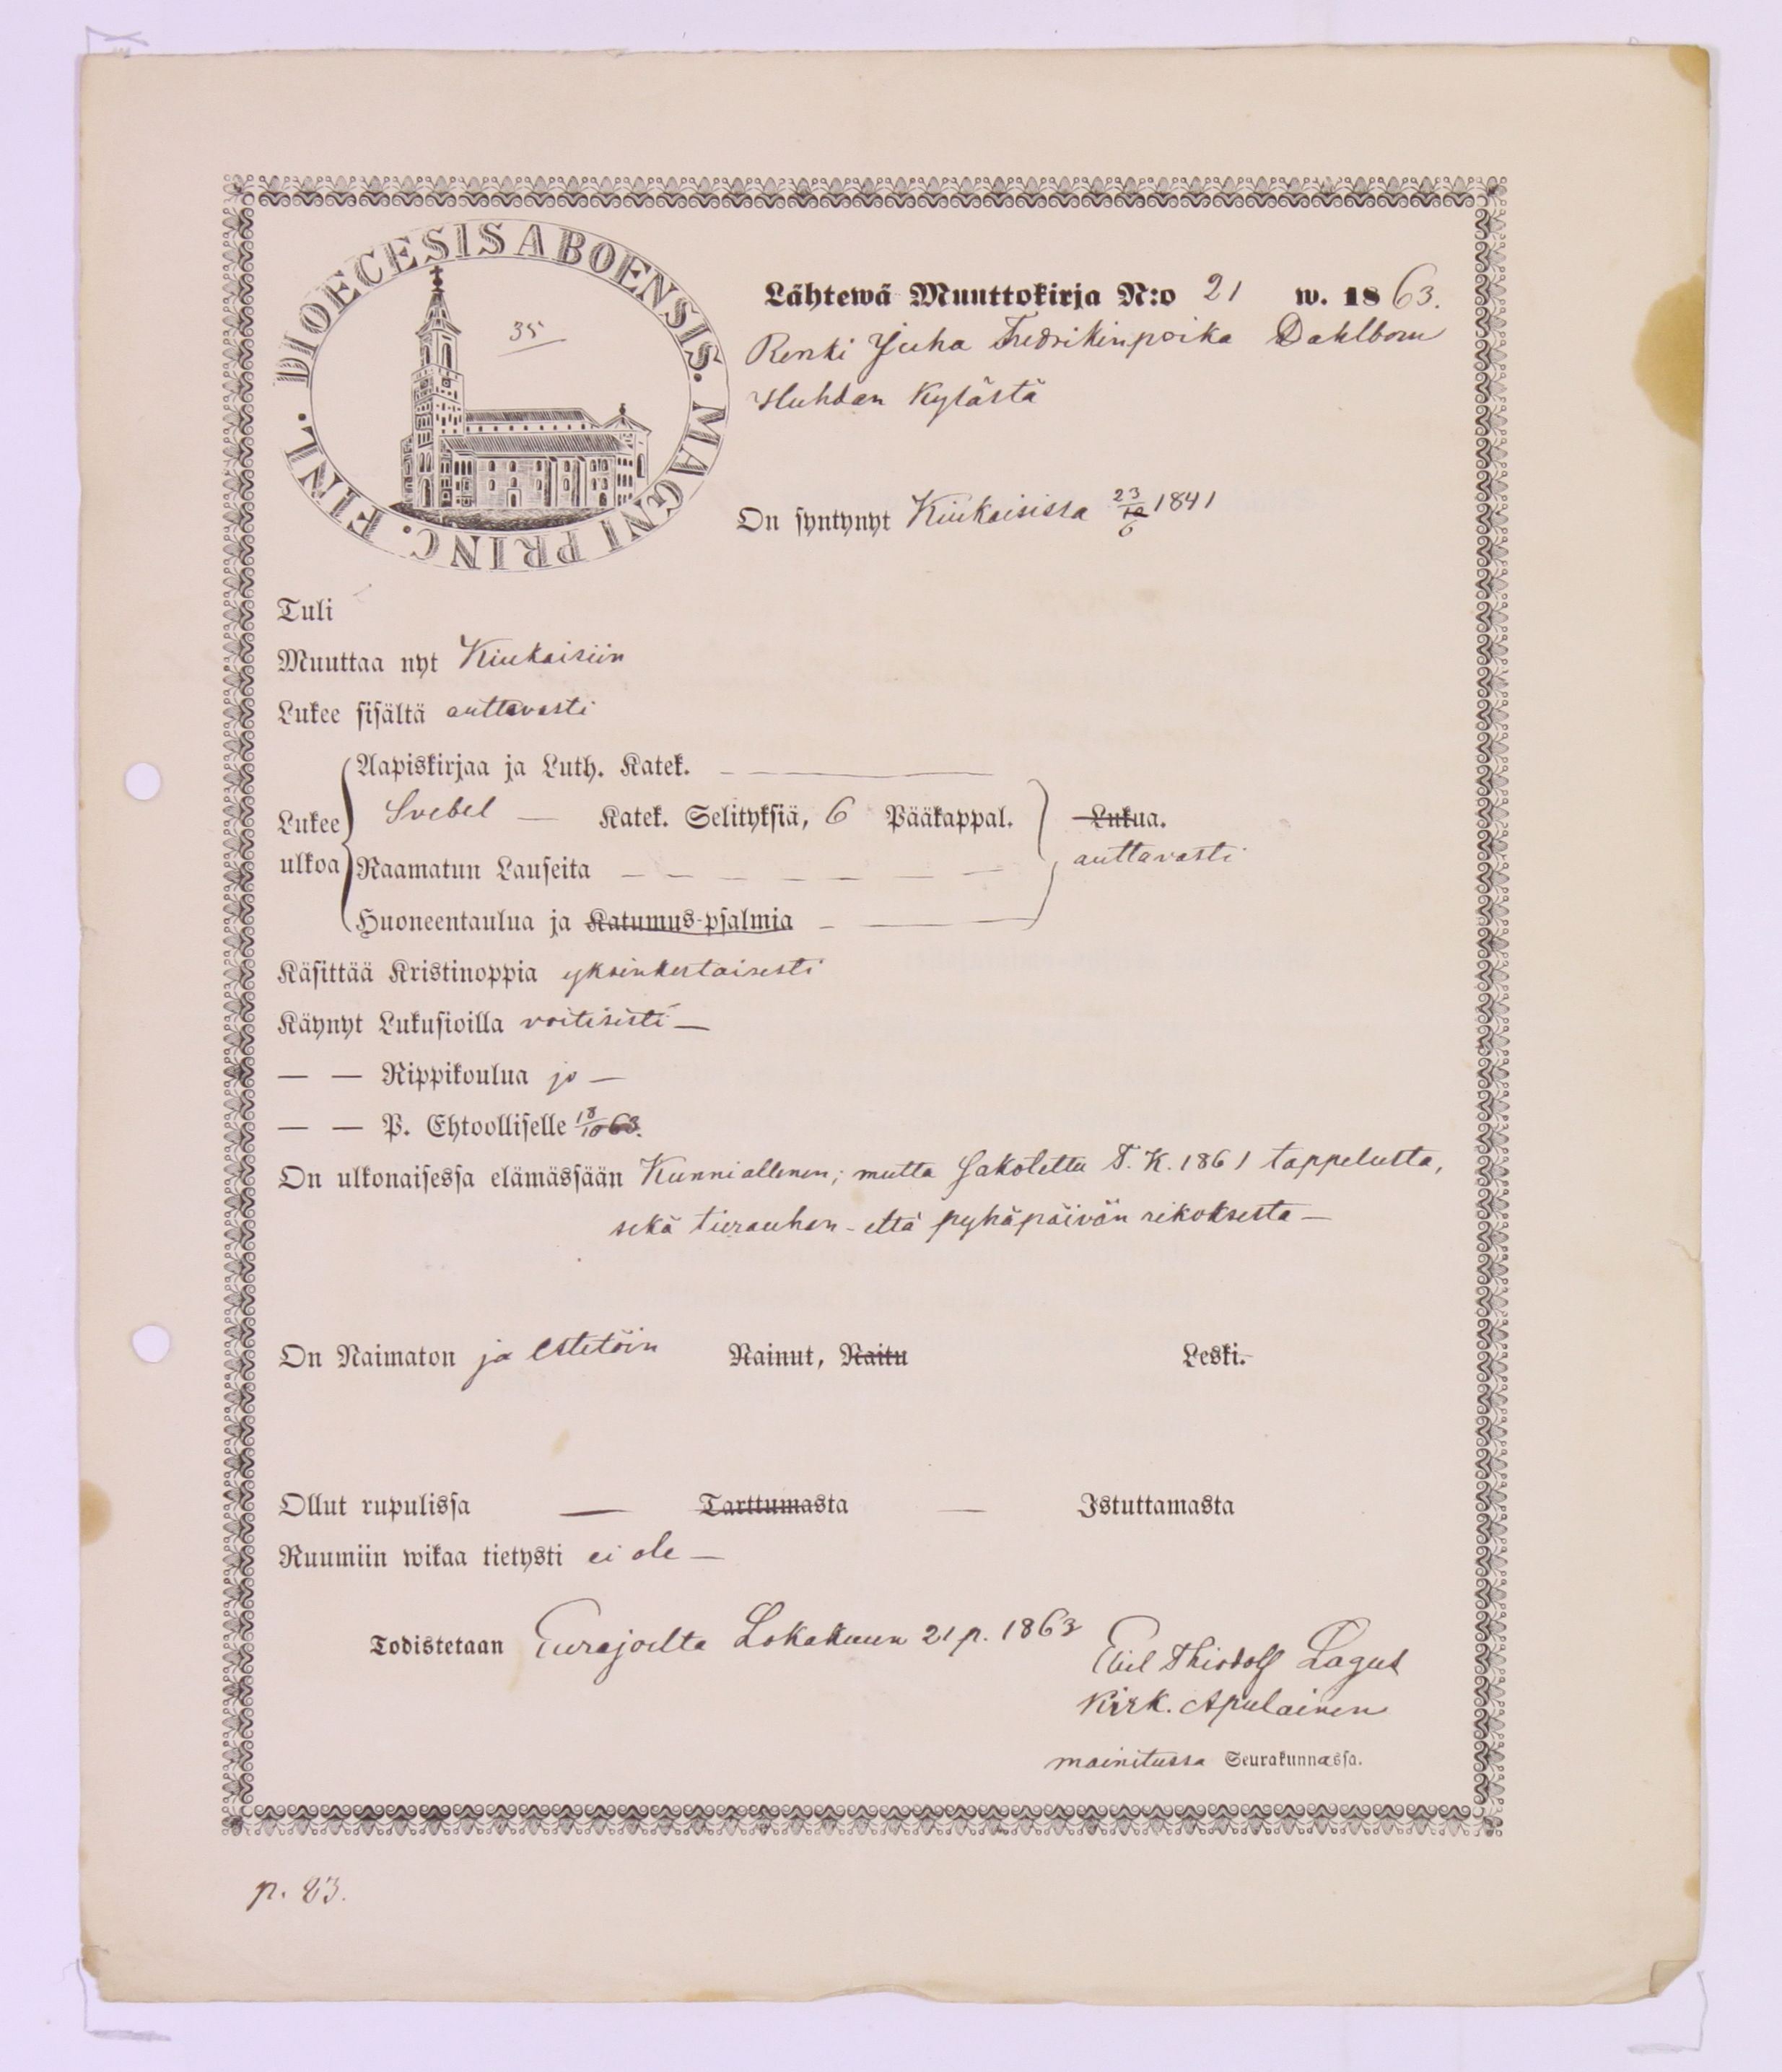 DIOECESIS ABOENSIS. MAGNI PRINC. FINL.
35
Lähtewä Muuttokirja N:o 21 w. 1863.
Renki Juha Fredrikinpoika Dahlbom
Huhdan Kylästä
On syntynyt Kiukaisissa 23/10 6 1841
Tuli
Muuttaa nyt Kiukaisiin
Lukee sisältä auttavasti
Aapiskirjaa ja Luth. Katek.
Lukee ulkoa
Svebel — Katek. Selityksiä, 6 Pääkappal.
Lukua.
auttavasti
Raamatun Lauseita
Huoneentaulua ja Katumus-psalmia
Käsittää Kristinoppia yksinkertaisesti
Käynyt Lukusioilla voitisesti —
— — Rippikoulua jo —
— — P. Ehtoolliselle 18/10 63.
On ulkonaisessa elämässään Kunniallinen; mutta Sakotettu T. K. 1861 tappelusta,
sekä tierauhan- että pyhäpäivän rikoksesta —
On Naimaton ja estetöin Nainut, Naitu Leski.
Ollut rupulissa — Tarttumasta — Istuttamasta
Ruumiin wikaa tietysti ei ole —
Todistetaan Eurajoelta Lokakuun 21 p. 1863
Emil Thiodolf Lagus
Kirk. Apulainen
mainitussa Seurakunnassa.
p. 23.